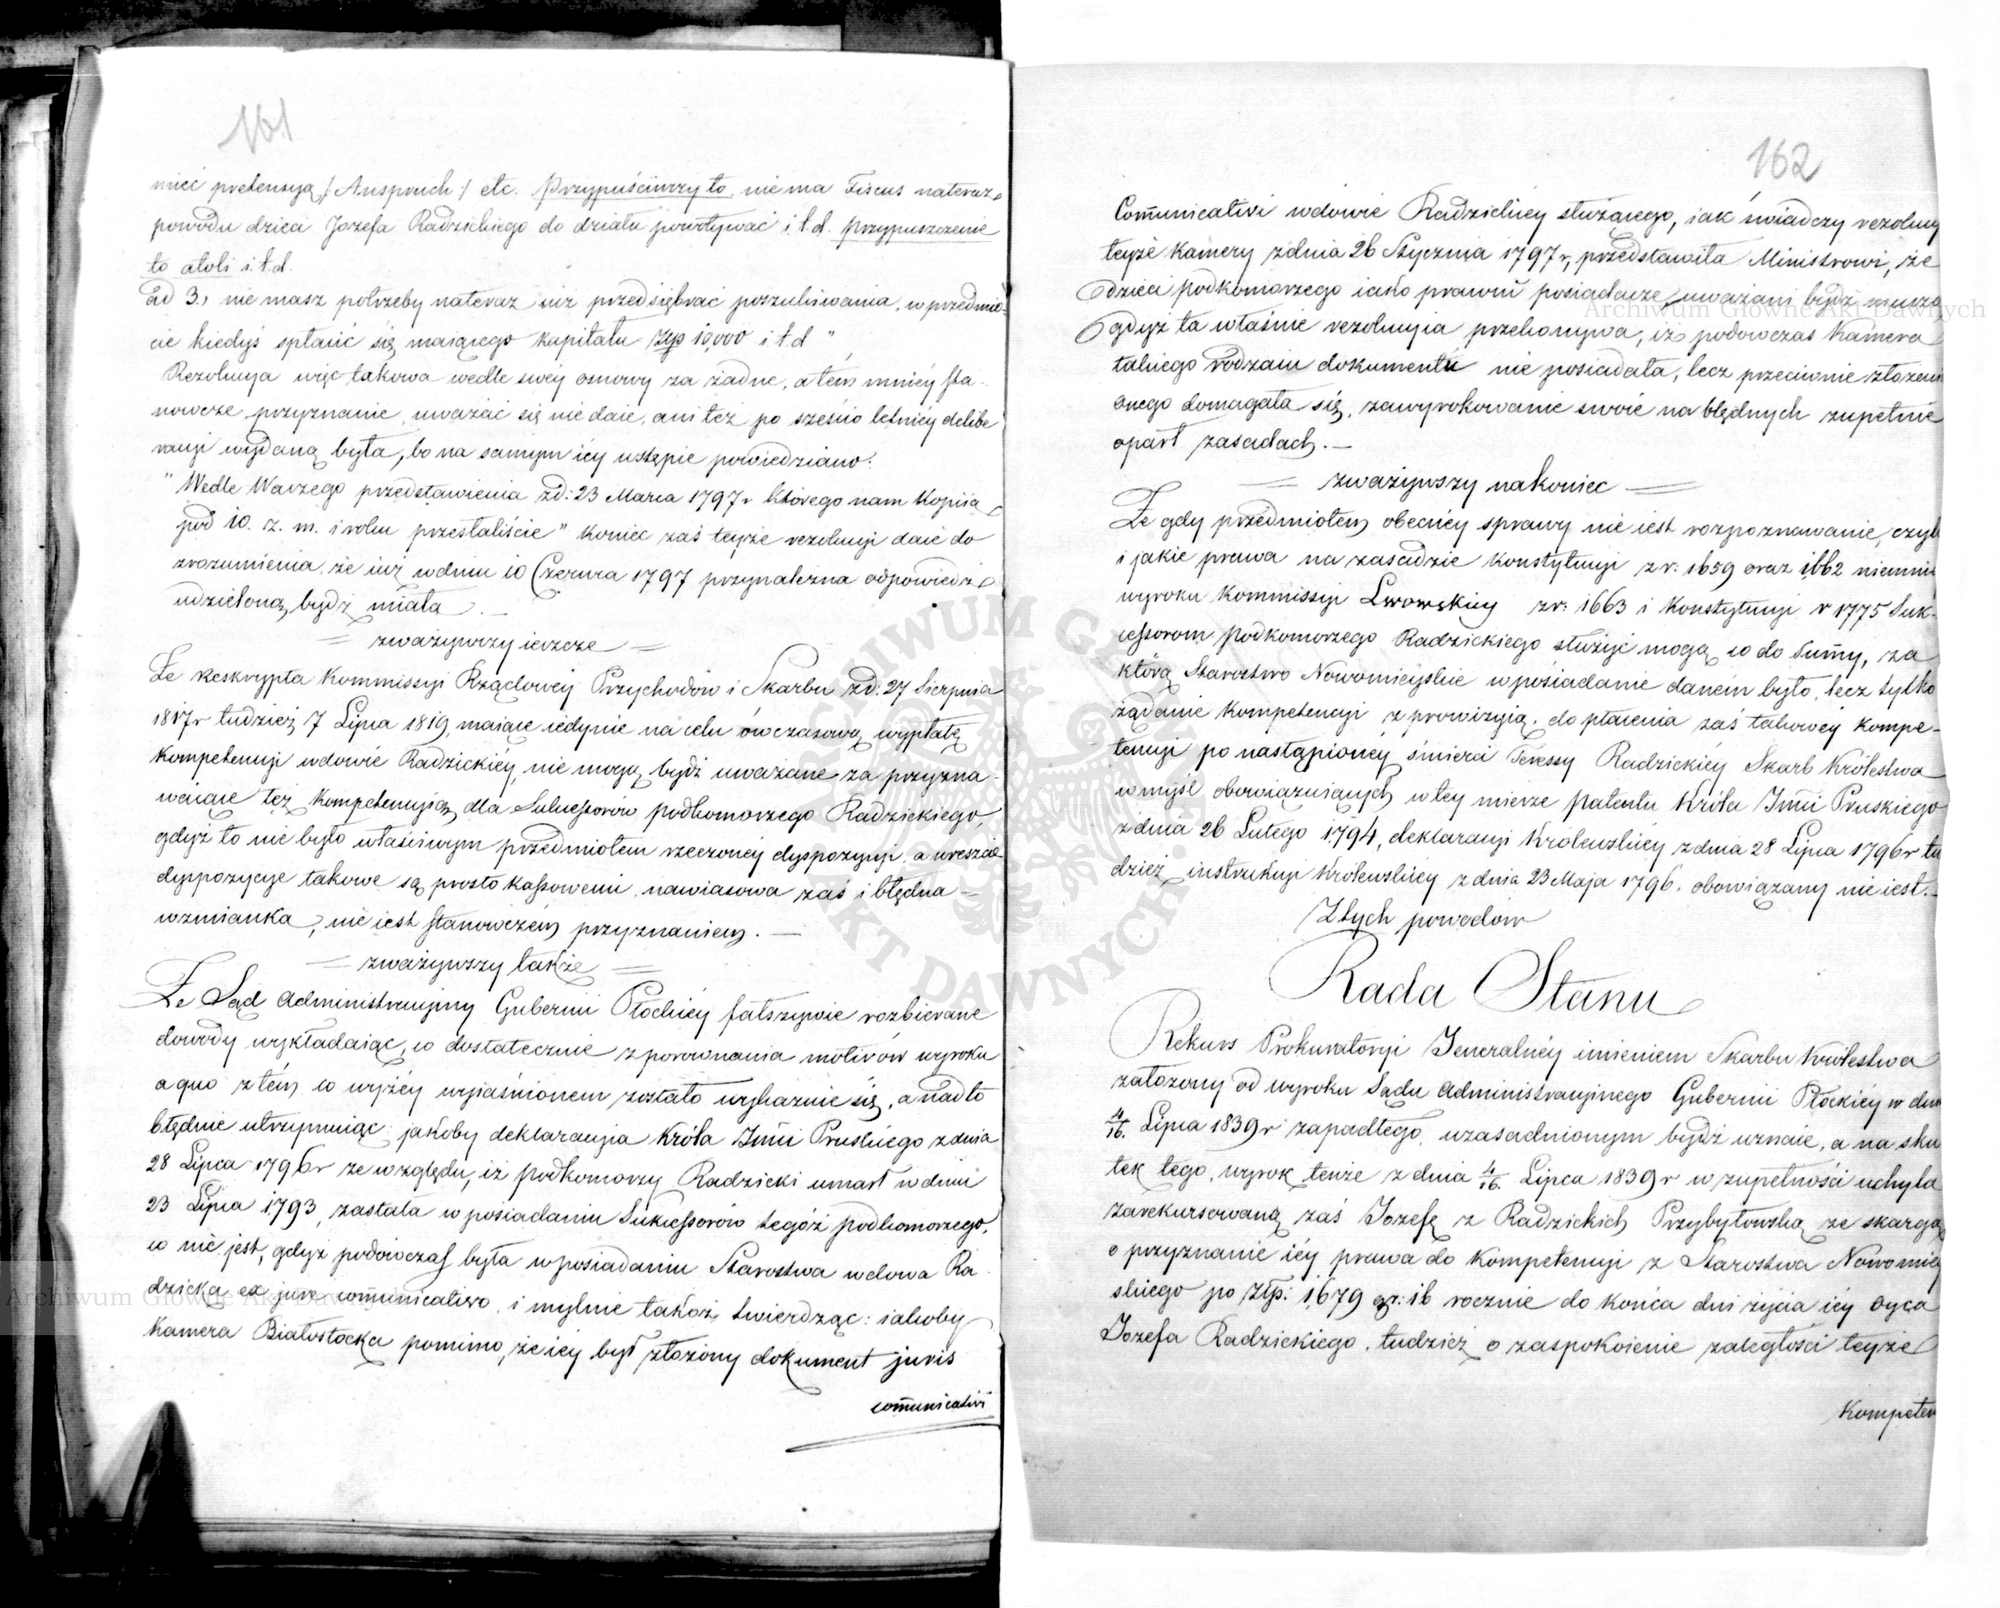 161
mieć pretensyą /: Anspruch :/ etc. Przypuściwszy to, nie ma Fiscus nateraz
powodu dzieci Jozefa Radzickiego do działu powoływać i.t.d. przypuszczenie
to atoli i.t.d.
Ad 3, nie masz potrzeby nateraz iuż przedsiębrać poszukiwania, w przedmio-
cie kiedyś spłacić się maiącego kapitału złp 10,000 i t.d "
Rezolucya więc takowa wedle swéy osnowy za żadne, a tém mniéy sta-
nowcze przyznanie uważać się nie daie, ani też po sześcio letniéy delibe
racyi wydaną była, bo na samym iéy wstępie powiedziano:
"Wedle Waszego przedstawienia z d: 23 Marca 1797 r którego nam kopiią
pod 10. z. m. i roku przesłaliście" koniec zaś teyże rezolucyi daie do
zrozumienia, że iuż w dniu 10 Czerwca 1797 przynależna odpowiedź
udzieloną bydź miała. —
= zważywszy ieszcze =
Że Reskrypta Kommissyi Rządowéy Przychodów i Skarbu z d. 27 Sierpnia
1817 r tudzież 7 Lipca 1819 maiące iedynie na celu ówczasową wypłatę
kompetencyi wdowie Radzickiéy, nie mogą bydź uważane za przyzna-
waiące téż kompetencyią dla Sukcessorów podkomorzego Radzickiego,
gdyż to nie było właściwym przedmiotem rzeczonéy dyspozycyi, a wreszcie
dyspozycye takowe są prosto kassowemi, nawiasowa zaś i błędna —
wzmianka, nie iest stanowczém przyznaniem. —
= zważywszy także =
Że Sąd Administracyjny Gubernii Płockiéy fałszywie rozbierane
dowody wykładaiąc, co dostatecznie z porównania motivów wyroku
a quo z tém co wyżéy wyiaśnionem zostało wykazuie się, a nadto
błędnie utrzymuiąc jakoby deklaracyia Króla Jmći Pruskiego z dnia
28 Lipca 1796 r ze względu, iż podkomorzy Radzicki umarł w dniu
23 Lipca 1793, zastała w posiadaniu Sukcessorów tegóż podkomorzego,
co nie jest, gdyż podówczas była w posiadaniu Starostwa wdowa Ra-
dzicka ex jure communicativo, i mylnie takoż twierdząc: iakoby
Kamera Białostocka pomimo, że iéy był złożony dokument juris
communicativi
162
Communicativi wdowie Radzickiéy służącego, iak świadczy rezolucy
teyże Kamery z dnia 26 Stycznia 1797 r, przedstawiła Ministrowi, że
dzieci podkomorzego iako prawni posiadacze uważani bydź muszą
gdyż ta właśnie rezolucyia przekonywa, iż podówczas Kamera
takiego rodzaiu dokumentu nie posiadała, lecz przeciwnie złożenia
onego domagała się, zawyrokowanie swoie na błędnych zupełnie
oparł zasadach. —
= zważywszy nakoniec =
Że gdy przedmiotem obecnéy sprawy nie iest rozpoznawanie, czyli
i jakie prawa na zasadzie konstytucyi z r: 1659 oraz 1662 niemniéy
wyroku Kommissyi Lwowskiéy z r: 1663 i Konstytucyi r 1775 Suk-
cessorom podkomorzego Radzickiego służyć mogą co do Summy, za
którą Starostwo Nowomieyskie w posiadanie daném było, lecz tylko
żądanie kompetencyi z prowizyią, do płacenia zaś takowéy kompe-
tencyi po nastąpionéy śmierci Teressy Radzickiéy Skarb Królestwa
w myśl obowiązuiących w téy mierze patentu Króla Jmći Pruskiego
z dnia 26 Lutego 1794, deklaracyi Królewskiéy z dnia 28 Lipca 1796 r tu
dzież instrukcyi Królewskiéy z dnia 23 Maja 1796. obowiązany nie iest. —
Z tych powodów
Rada Stanu
Rekurs Prokuratoryi Jeneralnéy imieniem Skarbu Królestwa
założony od wyroku Sądu Administracyjnego Gubernii Płockiéy w dniu
4/16. Lipca 1839 r zapadłego, uzasadnionym bydź uznaie, a na sku
tek tego, wyrok tenże z dnia 4/16. Lipca 1839 r w zupełności uchyla
zarekursowaną zaś Jozefę z Radzickich Przybyłowską ze skargą
o przyznanie iéy prawa do kompetencyi z Starostwa Nowomiey
skiego po Złp: 1679 gr: 16 rocznie do końca dni życia iéy oyca
Jozefa Radzickiego, tudzież o zaspokoienie zaległości teyże
Kompeten
Archiwum Główne Akt Dawnych
Archiwum Główne Akt Dawnych
ARCHIWUM GŁÓWNE AKT DAWNYCH